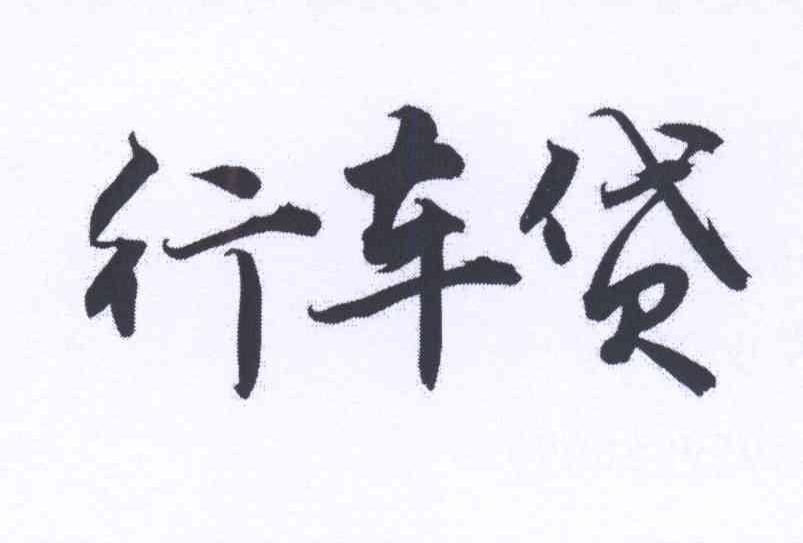 行车贷